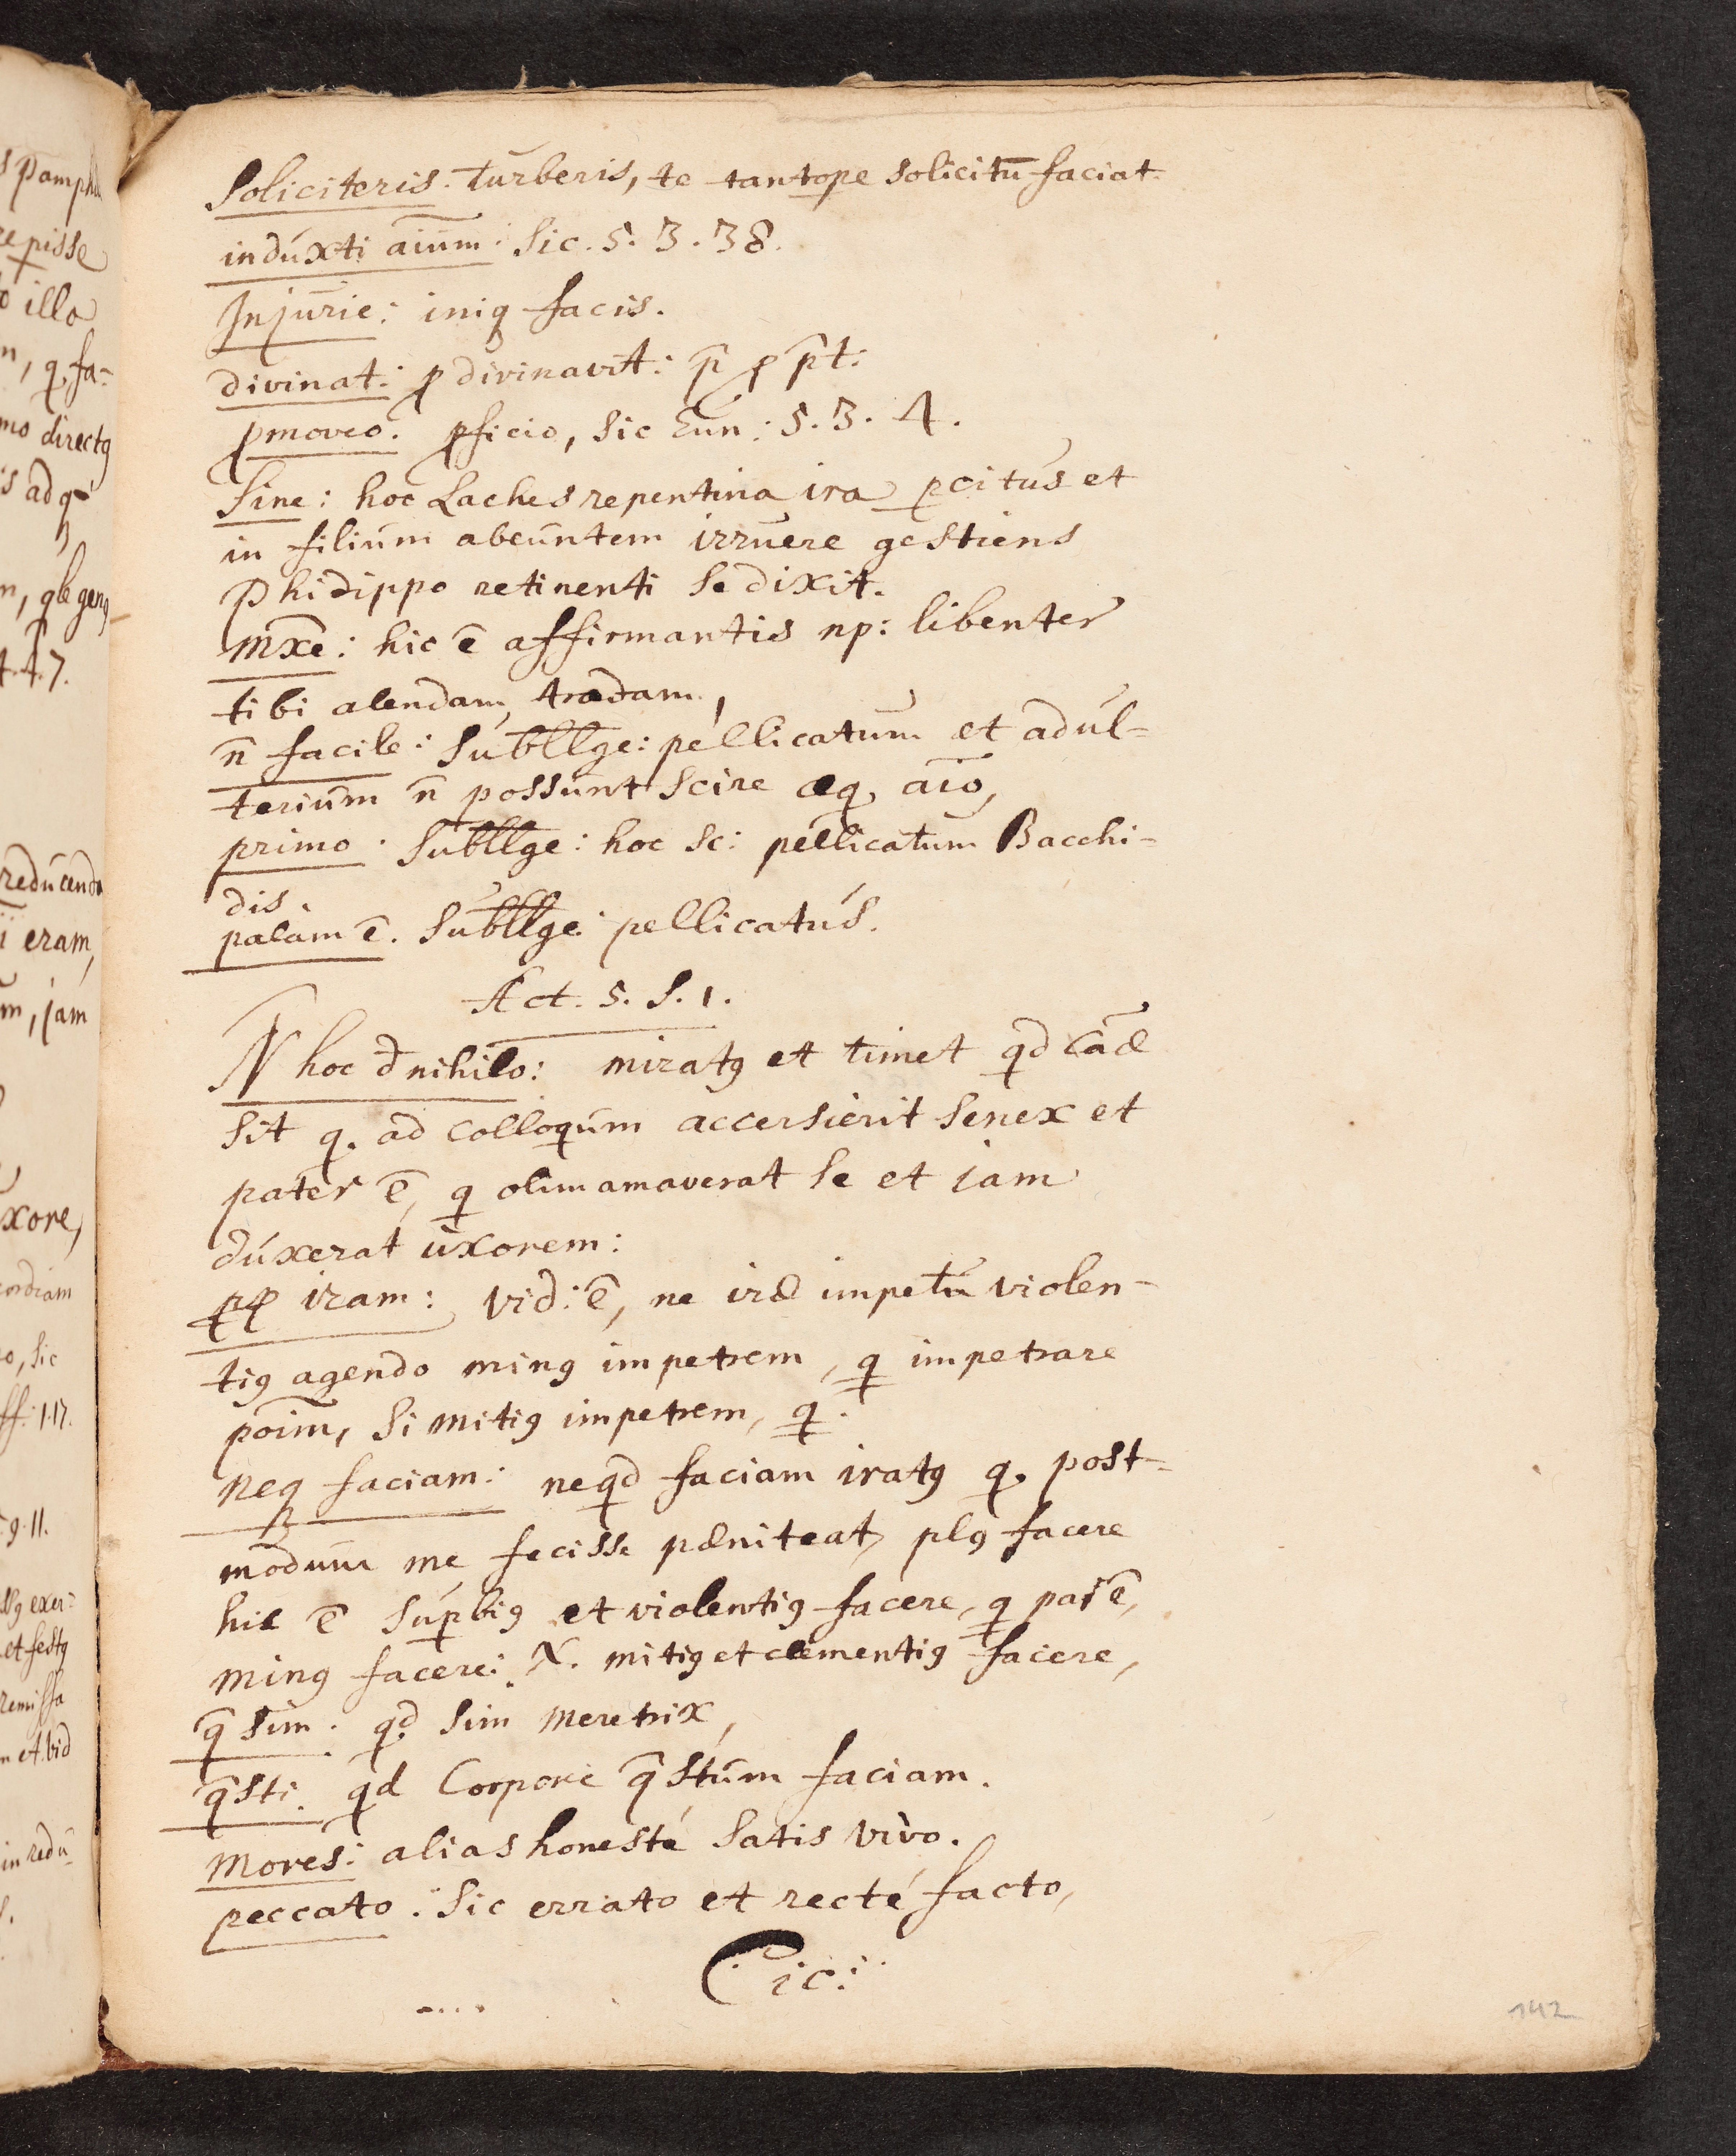 Soliciteris. Turberis, te tantope solicitū faciat.
indúxti aīum: Sic. 5. 3. 38.
Injurie: iniq facis.
divinat: ꝓ divinavit: p̄ ꝓ p̄t:
ꝓmoveo. ꝓficio, Sic Eun: 5. 3. 4.
Sine: hoc Laches repentina ira ꝑcitus et
in filium abeuntem irruere gestiens
Phidippo retinenti se dixit.
mxē: hic ē affirmantis np: libenter
tibi alendam tradam,
n̄ facile: Subllge: pellicatum et adul-
terium n̄ possunt scire æq, aīo,
primo. Subllge: hoc sc: pellicatum Bacchi-
dis.
palam ē. Subllge: pellicatus.
Act. 5. S. 1.
N hoc d nihilo: miratꝯ et timet qd caæ
sit q. ad colloqum accersierit senex et
pater ē, q olim amaverat se et jam
duxerat uxorem:
ꝓp iram: vid: ē, ne iræ impetū violen-
tiꝯ agendo minꝯ impetrem, q impetrare
poīm, si mitiꝯ impetrem, q.
neq faciam: neqd faciam iratꝯ q. post-
modum me fecisse pæniteat, plꝯ facere
hic ē supbiꝯ et violentiꝯ facere, q par ē,
minꝯ facere: N. mitiꝯ et clementiꝯ facere,
q̄ sim. qd sim meretrix,
q̄sti. qd Corpore q̄stum faciam.
Mores: alias honesté satis vivo.
peccato. Sic errato et recté facto,
Cic:
142